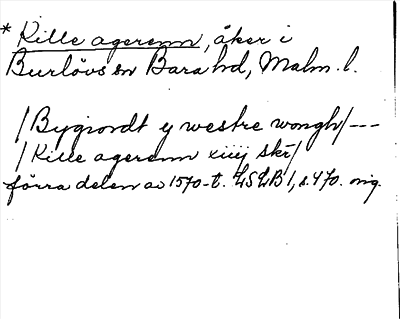 * Kille agerenn, åker i
Burlövs sn Bara hd, Malm. l.
/Bygiordt y westre wongh/---
/Kille agerenn xiiij skr/
förra delen av 1570-t. LSLB 1, s. 470. orig.